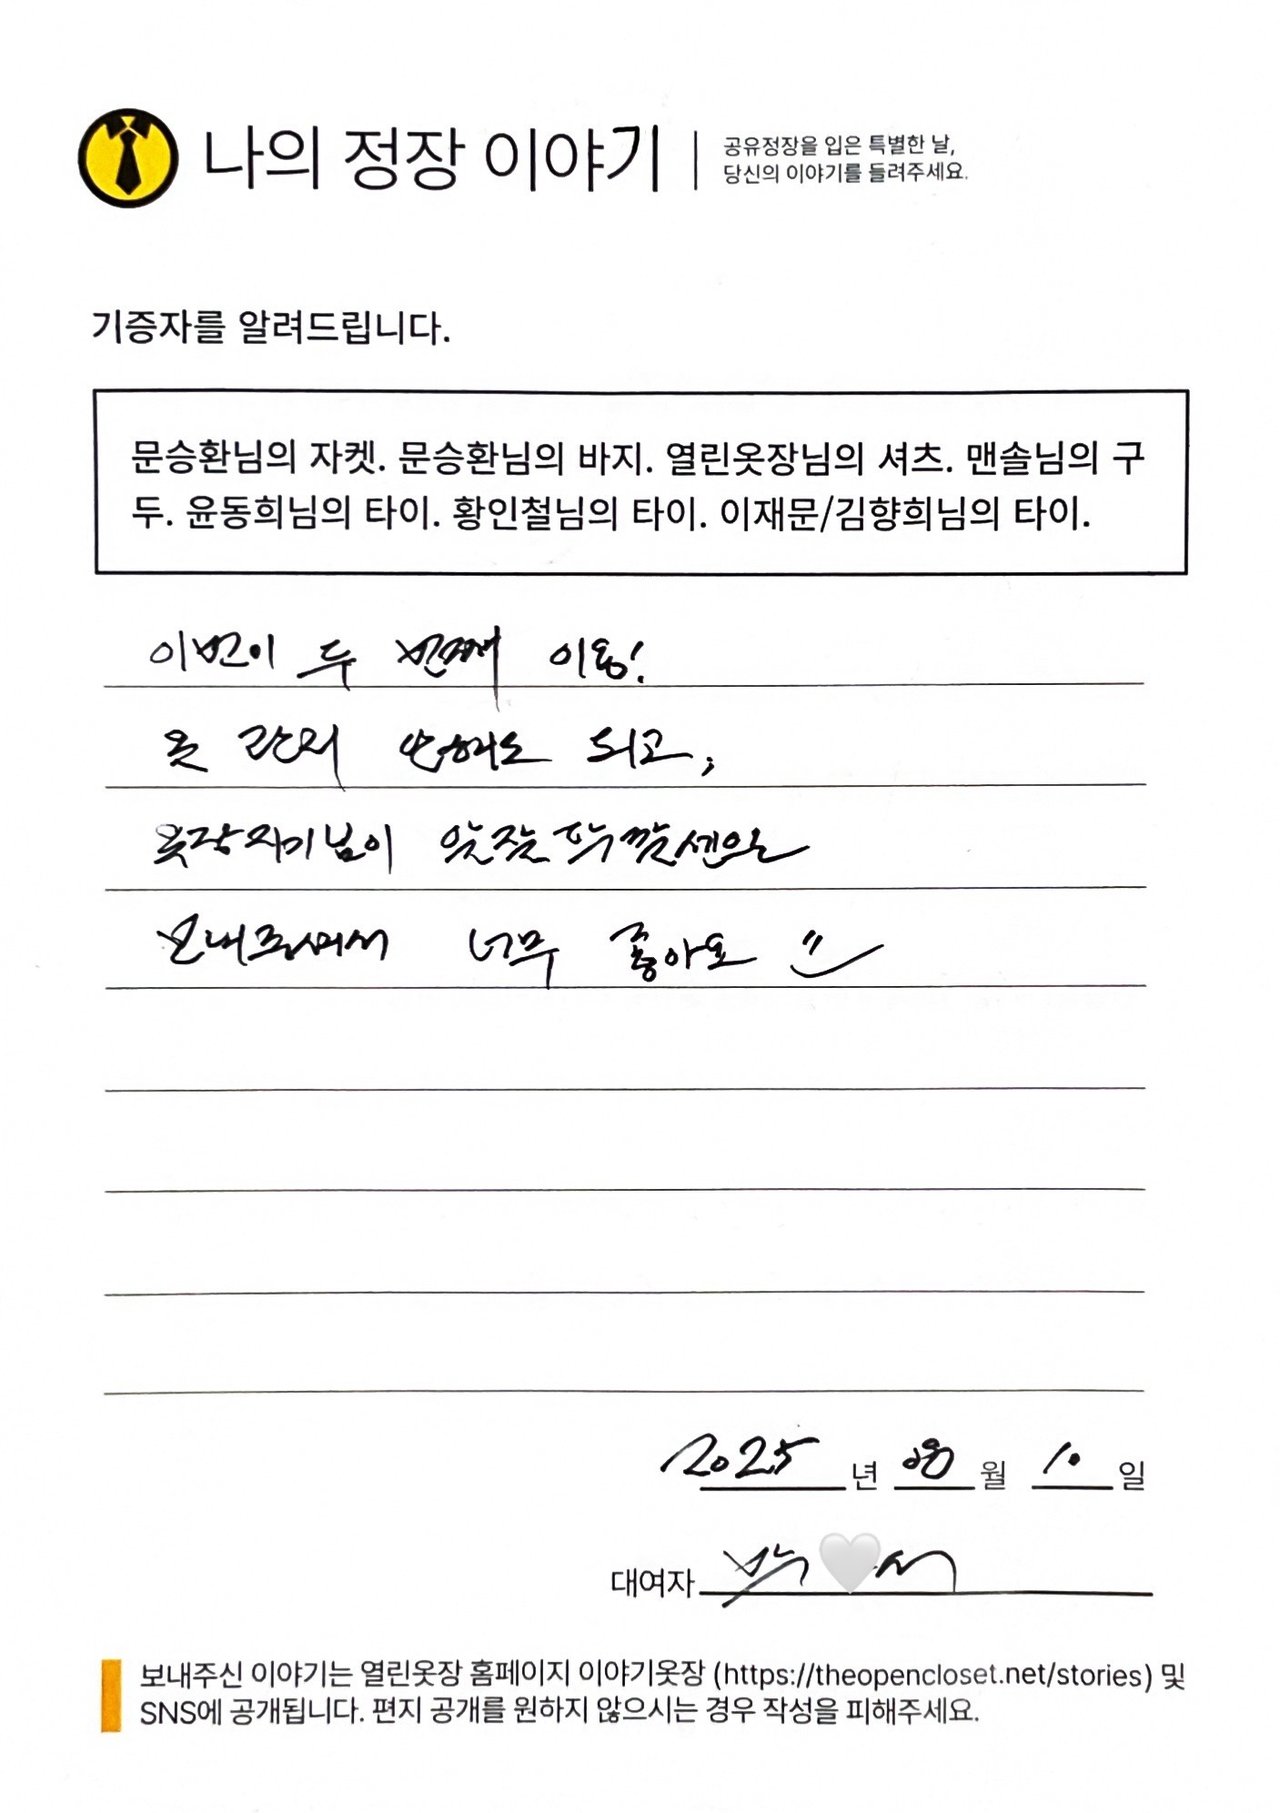 나의 정장 이야기
공유정장을 입은 특별한 날,
당신의 이야기를 들려주세요.
기증자를 알려드립니다.
문승환님의 자켓. 문승환님의 바지. 열린옷장님의 셔츠. 맨솔님의 구
두. 윤동희님의 타이. 황인철님의 타이. 이재문/김향희님의 타이.
이번이 두 번째 이용!
옷 관리 안해도 되고,
옷장지기님이 알잘딱깔센으로
보내주셔서 너무 좋아요
2025 년 08 월 10 일
대여자 박
보내주신 이야기는 열린옷장 홈페이지 이야기옷장 (https://theopencloset.net/stories) 및
SNS에 공개됩니다. 편지 공개를 원하지 않으시는 경우 작성을 피해주세요.